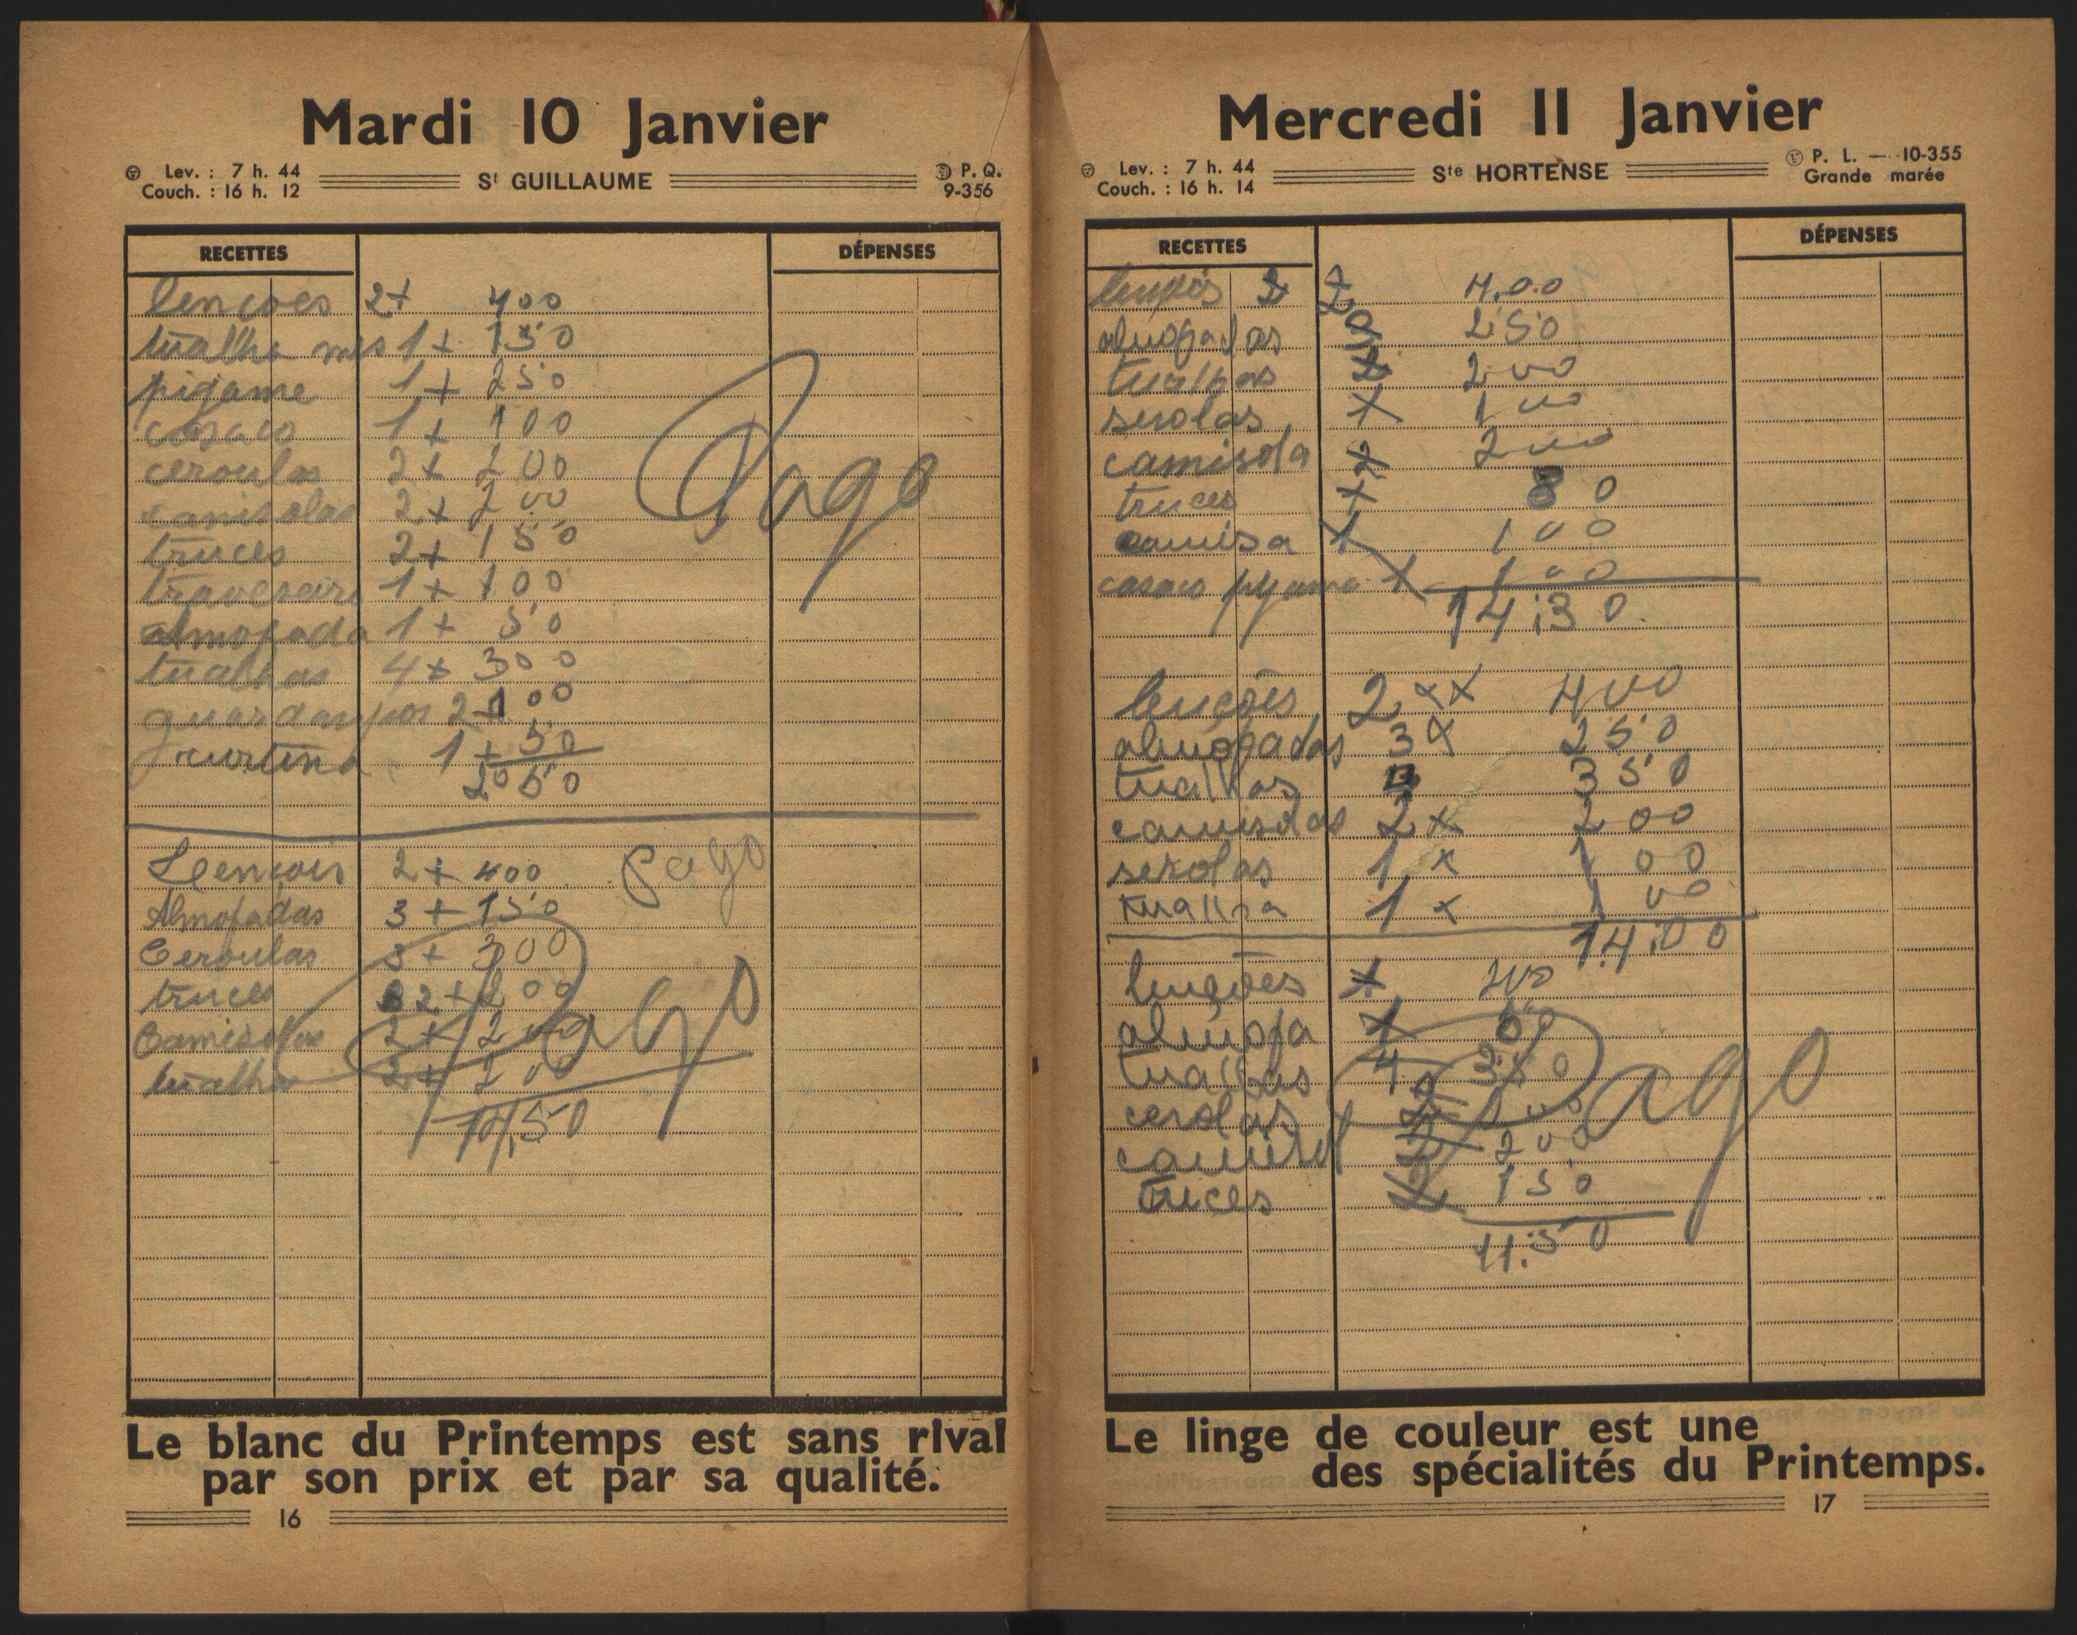 Mardi 10 Janvier
Lev. : 7 h. 44
Couch. : 16 h. 12
St GUILLAUME
P. Q.
9-356
RECETTES
DÉPENSES
lençoes 2+ 400
tualha 1+ 150
pigame 1+ 250
casaco 1+ 100
ceroulas 2+ 200
camisolas 2+ 200
truces 2+ 150
traveseiro 1+ 100
almofada 1+ 50
tualhas 4+ 300
guardanpos 2 100
curtina 1+ 50
2050
Pago
Lencois 2+ 400
pago
Almofadas 3+ 150
Ceroulas 3+ 300
truces 2+ 200
Camisolas 2+ 200
tualha 2+ 200
14,50
Pago
Le blanc du Printemps est sans rival
par son prix et par sa qualité.
16
Mercredi 11 Janvier
Lev. : 7 h. 44
Couch. : 16 h. 14
Ste HORTENSE
P. L. — 10-355
Grande marée
RECETTES
DÉPENSES
4.00
almofadas 250
tualhas 2 200
serolas 1 100
camisola 2 200
truces 80
camisa 1 100
casaco pyjama 1 100
14:30
lençoes 2 xx 400
almofadas 3x 250
tualhas 350
camisolas 2x 200
serolas 1x 100
tualha 1x 100
14:00
lençoes 1 200
almofa 1
tualhas 4
cerolas
camisol 2 200
truces 2 150
11.50
Pago
Le linge de couleur est une
des spécialités du Printemps.
17